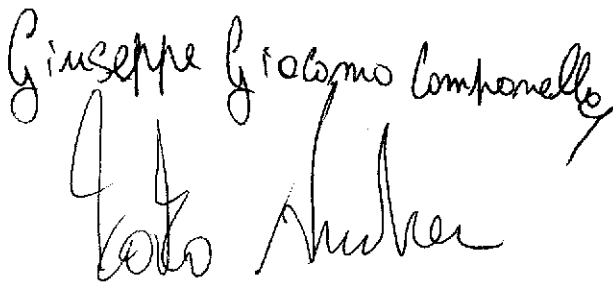 Giuseppe Giacomo Campanella
Andrea